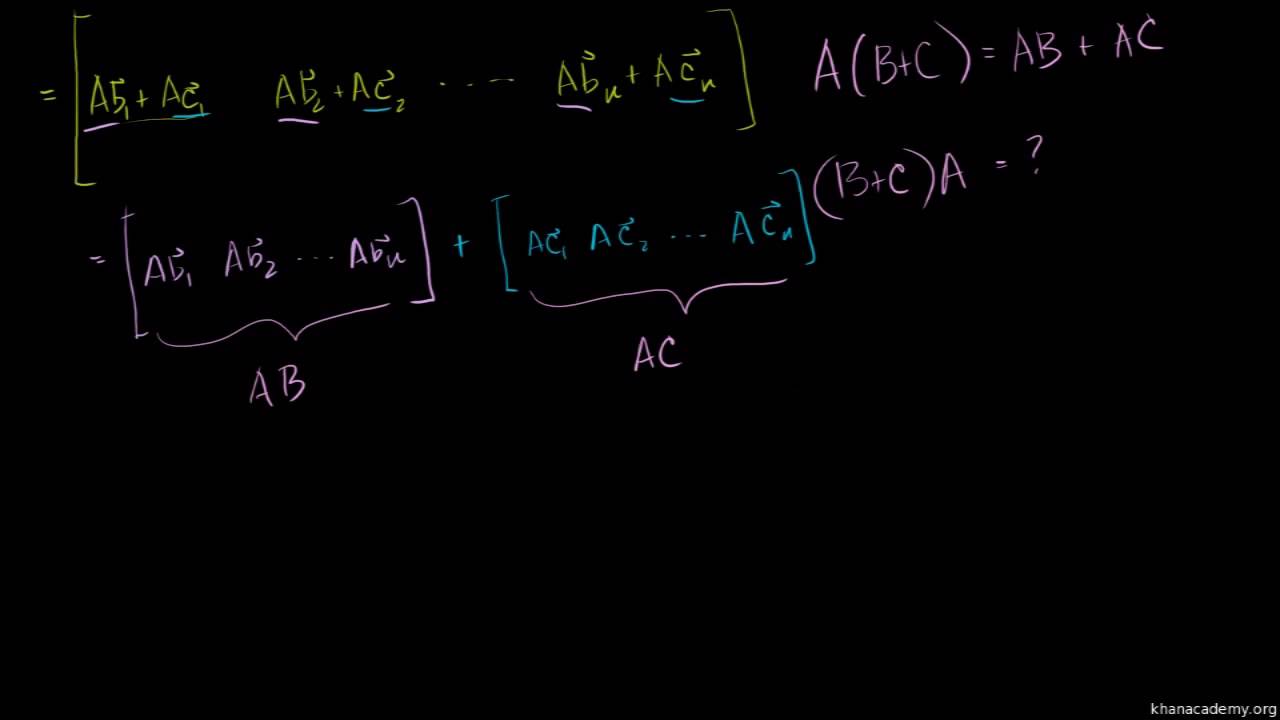 = [ Ab⃗₁ + Ac⃗₁  Ab⃗₂ + Ac⃗₂ ⋯ Ab⃗ₙ + Ac⃗ₙ ]
A(B+C) = AB + AC
(B+C)A = ?
= [ Ab⃗₁ Ab⃗₂ ⋯ Ab⃗ₙ ] + [ Ac⃗₁ Ac⃗₂ ⋯ Ac⃗ₙ ]
AB
AC
khanacademy.org